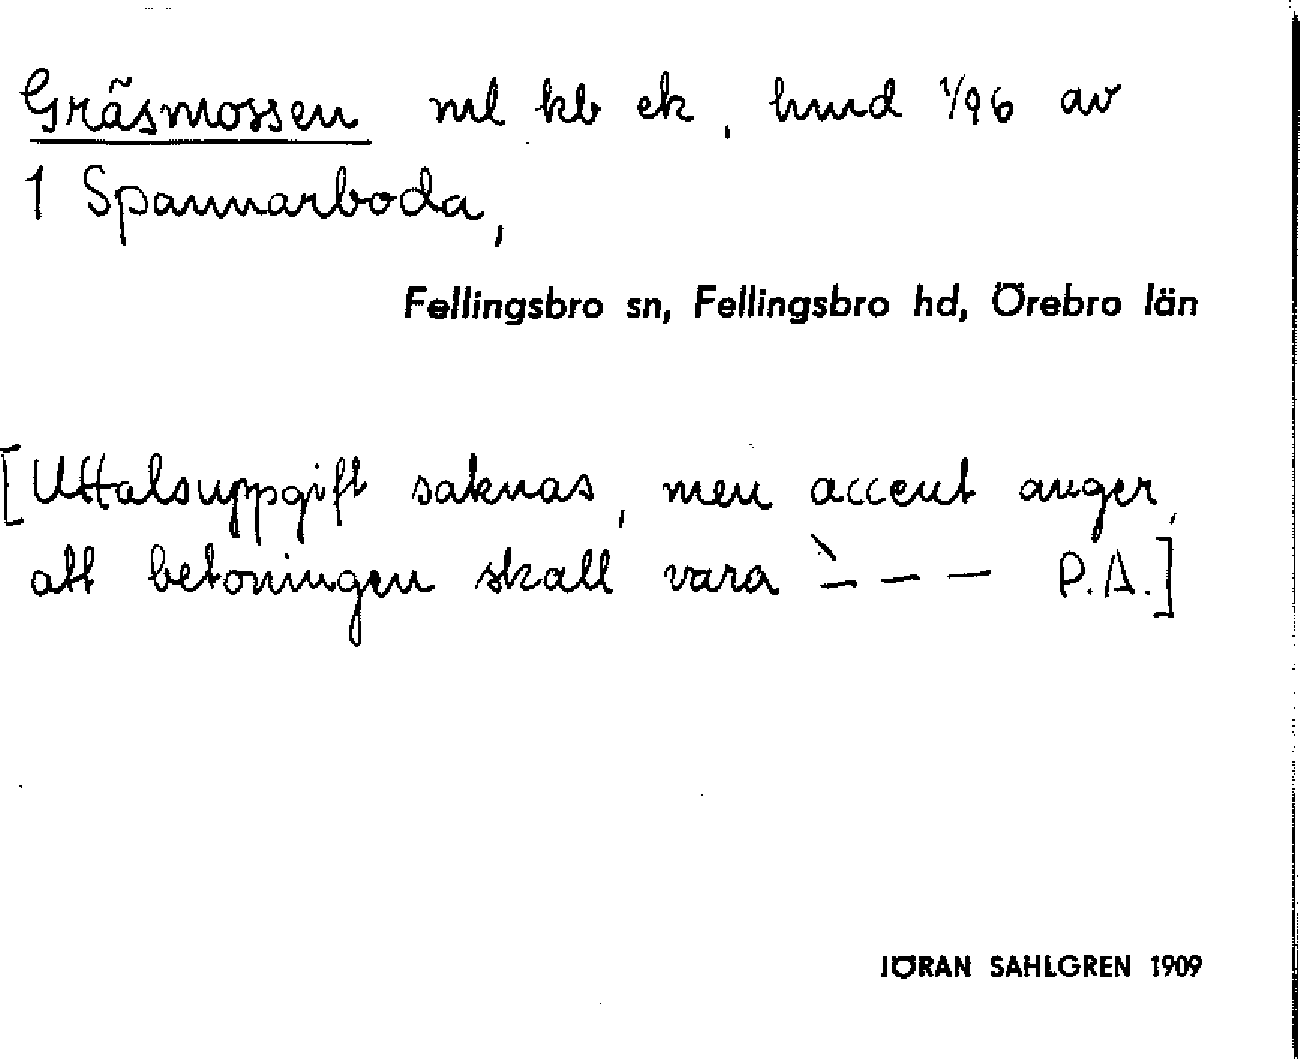 Gräsmossen ml kb ek, hmd 1/96 av
1 Spannarboda,
Fellingsbro sn, Fellingsbro hd, Örebro län
[Uttalsuppgift saknas, men accent anger,
att betoningen skall vara ̀– – – P.A.]
JÖRAN SAHLGREN 1909